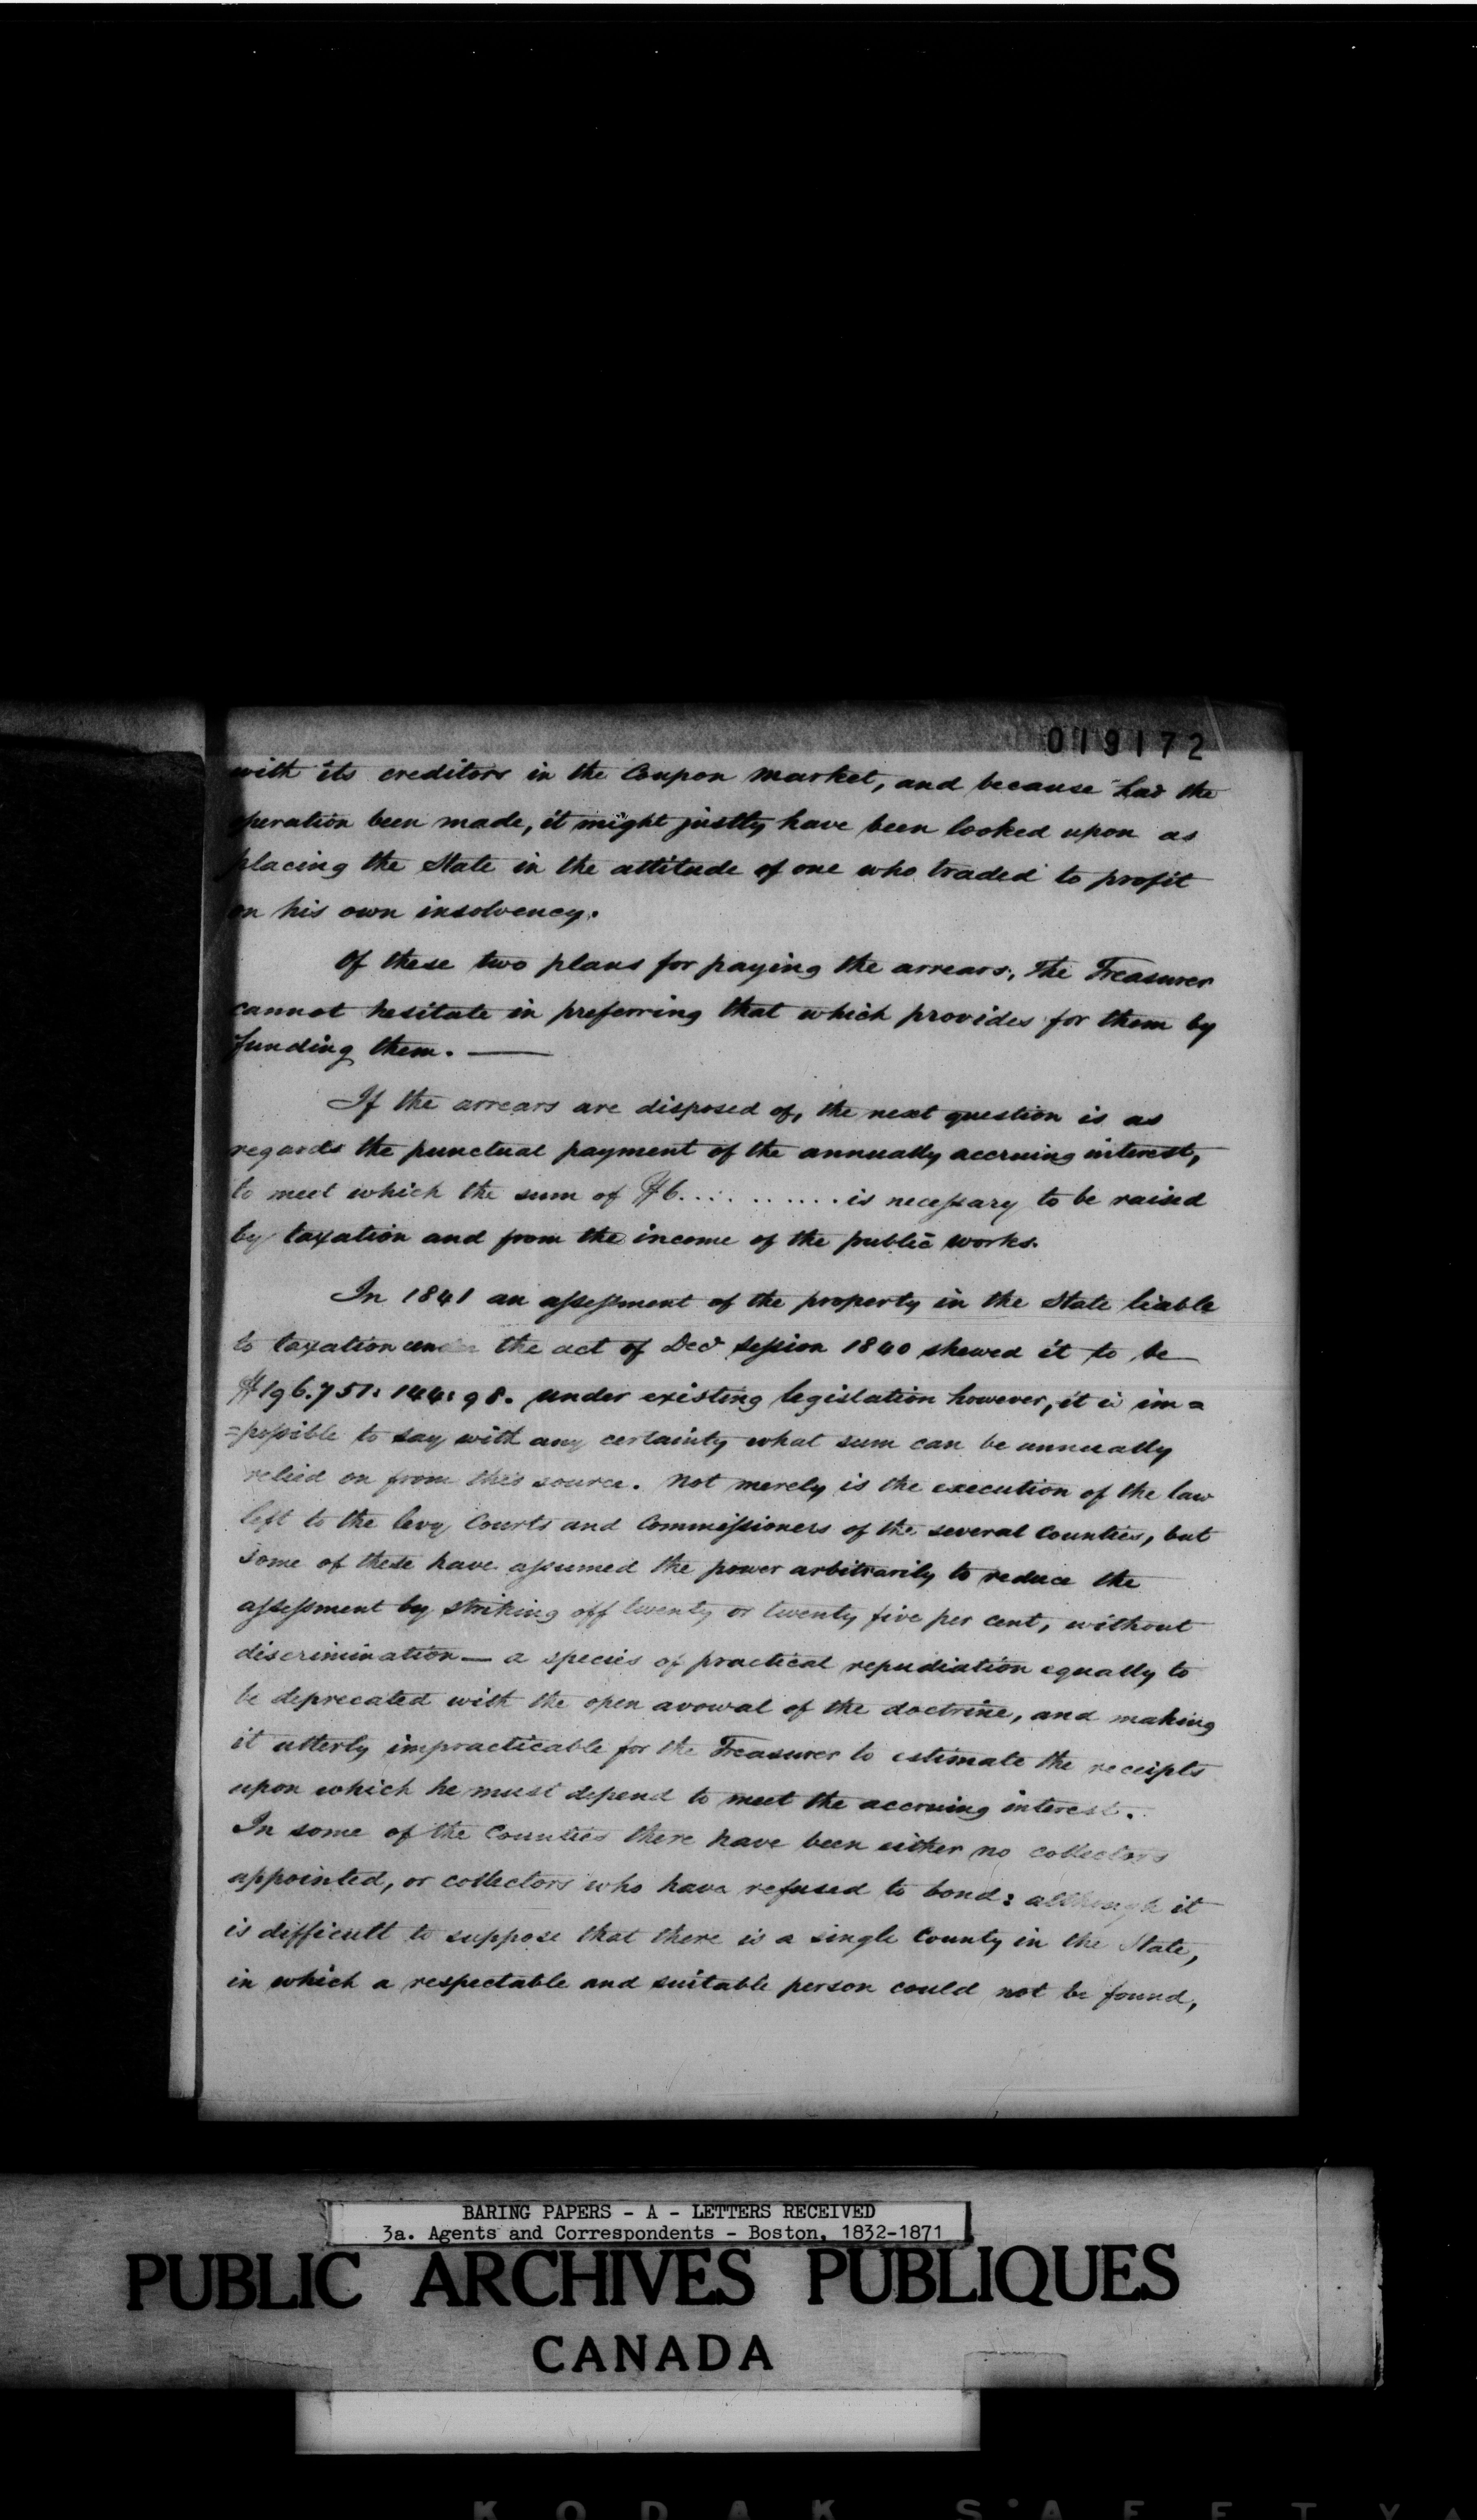 019172
with its creditors in the Coupon market, and because had the
operation been made, it might justly have been looked upon as
placing the State in the attitude of one who traded to profit
on his own insolvency.
Of these two plans for paying the arrears, The Treasurer
cannot hesitate in preferring that which provides for them by
funding them. —
If the arrears are disposed of, the next question is as
regards the punctual payment of the annually accruing interest,
to meet which the sum of $6........... is necessary to be raised
by taxation and from the income of the public works.
In 1841 an assessment of the property in the State liable
to taxation under the act of Decr session 1840 shewed it to be
$196.751:144:98. under existing legislation however, it is im=
=possible to say with any certainty what sum can be annually
relied on from this source. Not merely is the execution of the law
left to the levy Courts and Commissioners of the several Counties, but
some of these have assumed the power arbitrarily to reduce the
assessment by striking off twenty or twenty five per cent, without
discrimination — a species of practical repudiation equally to
be deprecated with the open avowal of the doctrine, and making
it utterly impracticable for the Treasurer to estimate the receipts
upon which he must depend to meet the accruing interest.
In some of the Counties there have been either no collectors
appointed, or collectors who have refused to bond: although it
is difficult to suppose that there is a single County in the State,
in which a respectable and suitable person could not be found,
BARING PAPERS - A - LETTERS RECEIVED
3a. Agents and Correspondents - Boston, 1832-1871
PUBLIC ARCHIVES PUBLIQUES
CANADA
KODAK SAFETY